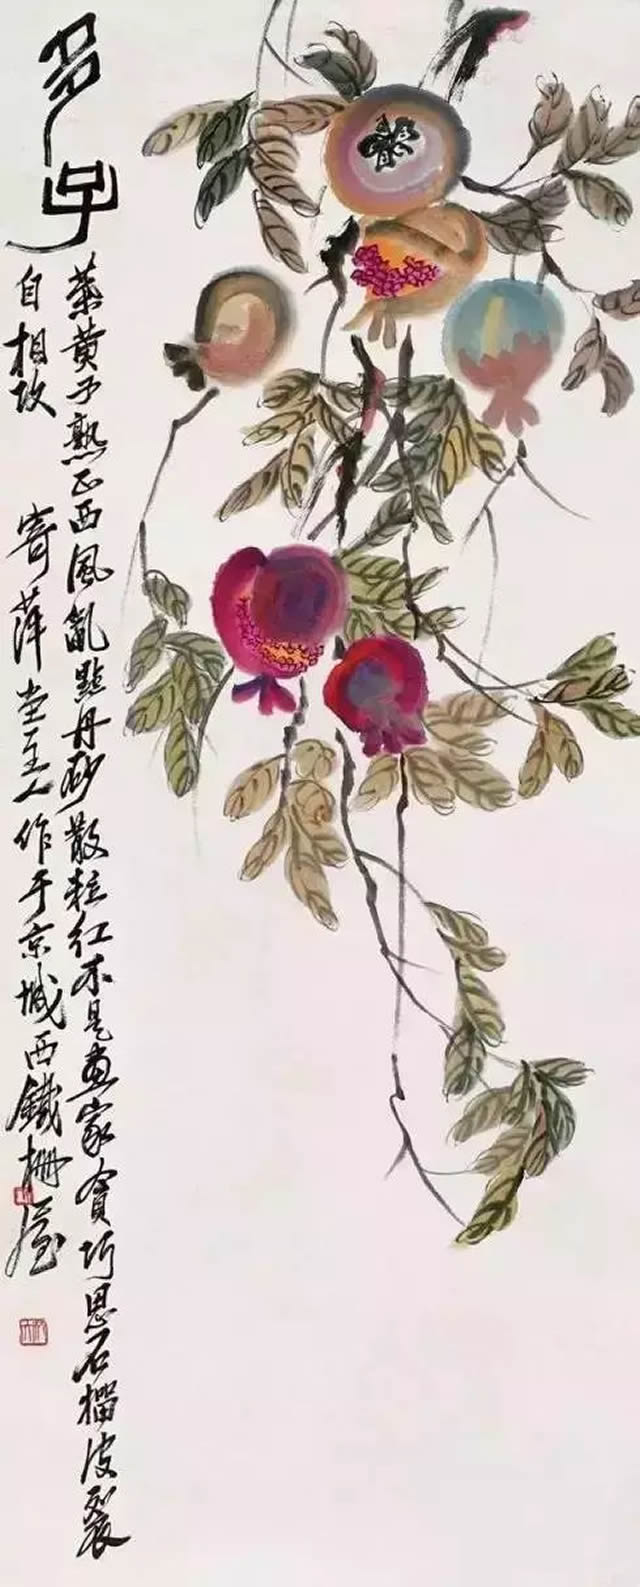 多子
葉黄子熟正西風亂點丹砂散粒紅未是畫家貪巧思石榴皮裂
自相攻 寄萍堂主人作于京城西鐵柵屋